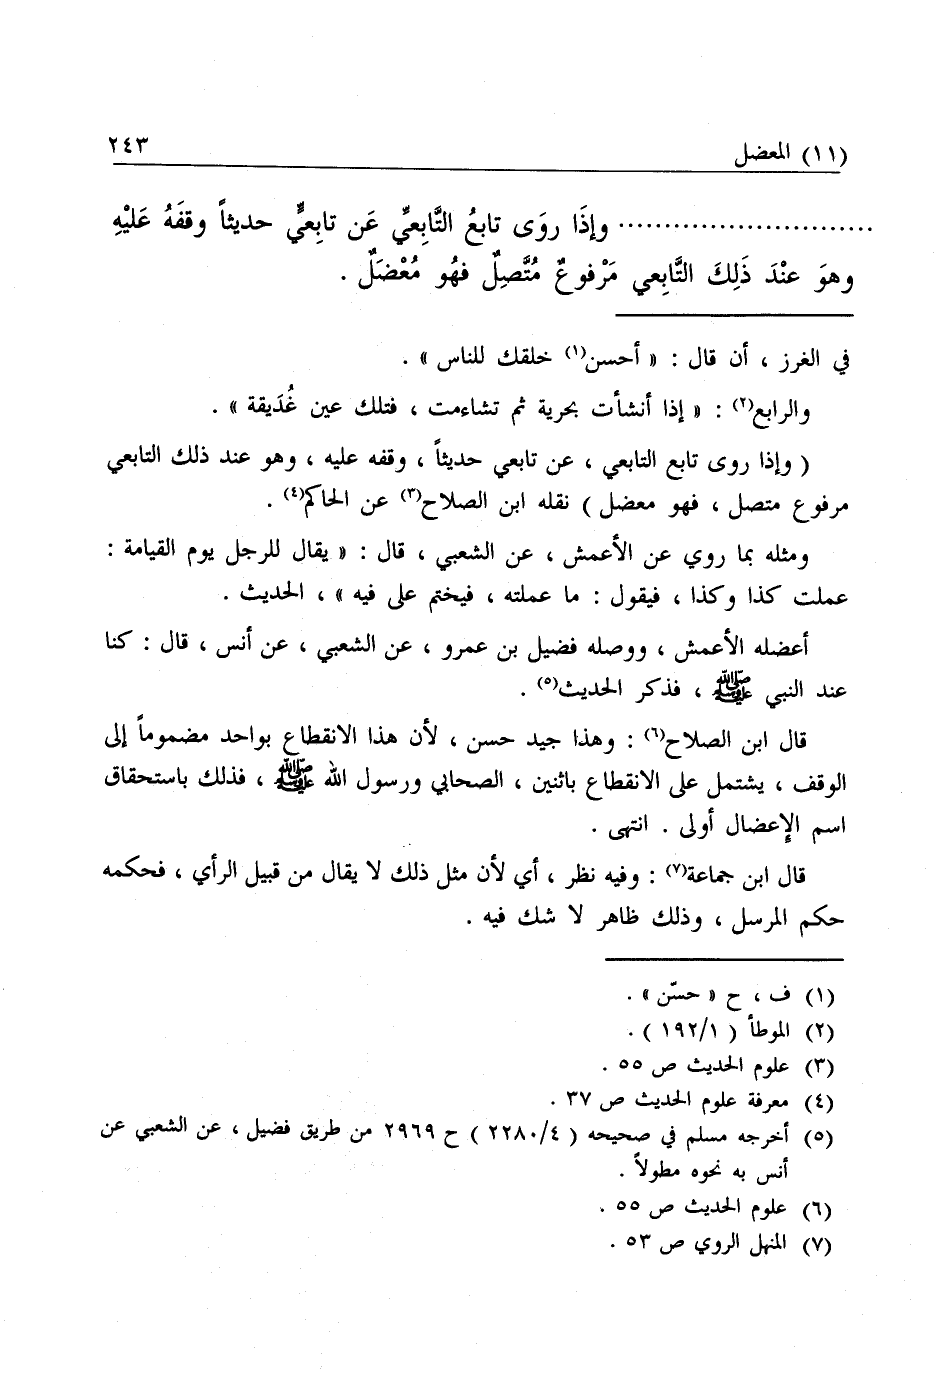 (١١) المعضل ٢٤٣
............................ وإذَا روَى تابعُ التَّابِعيِّ عَن تابِعيٍّ حديثاً وقفَهُ عَليْهِ
وهوَ عنْدَ ذَلِكَ التَّابِعي مَرْفوعٌ مُتَّصِلٌ فهُو مُعْضَلٌ .
في الغرز ، أن قال : « أحسن(١) خلقك للناس » .
والرابع(٢) : « إذا أنشأت بحرية ثم تشاءمت ، فتلك عين غُدَيقة » .
( وإذا روى تابع التابعي ، عن تابعي حديثاً ، وقفه عليه ، وهو عند ذلك التابعي
مرفوع متصل ، فهو معضل ) نقله ابن الصلاح(٣) عن الحاكم(٤) .
ومثله بما روي عن الأعمش ، عن الشعبي ، قال : « يقال للرجل يوم القيامة :
عملت كذا وكذا ، فيقول : ما عملته ، فيختم على فيه » ، الحديث .
أعضله الأعمش ، ووصله فضيل بن عمرو ، عن الشعبي ، عن أنس ، قال : كنا
عند النبي ﷺ ، فذكر الحديث(٥) .
قال ابن الصلاح(٦) : وهذا جيد حسن ، لأن هذا الانقطاع بواحد مضموماً إلى
الوقف ، يشتمل على الانقطاع باثنين ، الصحابي ورسول الله ﷺ ، فذلك باستحقاق
اسم الإعضال أولى . انتهى .
قال ابن جماعة(٧) : وفيه نظر ، أي لأن مثل ذلك لا يقال من قبيل الرأي ، فحكمه
حكم المرسل ، وذلك ظاهر لا شك فيه .
(١) ف ، ح « حسّن » .
(٢) الموطأ ( ١٩٢/١ ) .
(٣) علوم الحديث ص ٥٥ .
(٤) معرفة علوم الحديث ص ٣٧ .
(٥) أخرجه مسلم في صحيحه ( ٢٢٨٠/٤ ) ح ٢٩٦٩ من طريق فضيل ، عن الشعبي عن
أنس به نحوه مطولاً .
(٦) علوم الحديث ص ٥٥ .
(٧) المنهل الروي ص ٥٣ .